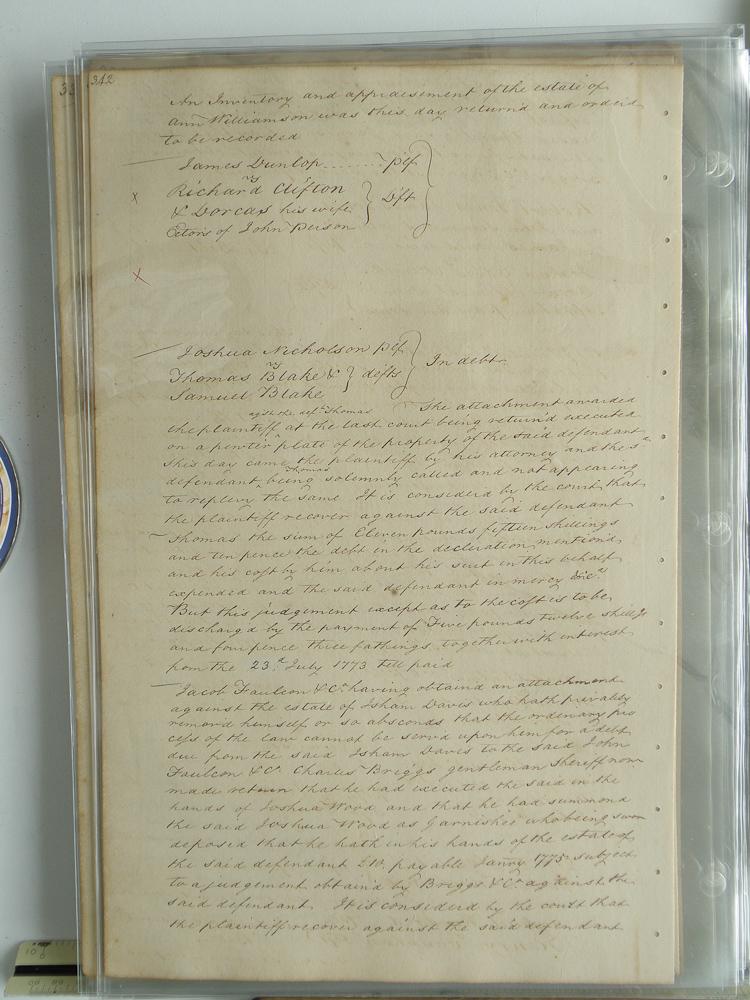 342
An Inventory and appraisement of the estate of
Ann Williamson was this day return'd and orderd
to be recorded
James Dunlop plf
vs
Richard Clifton
& Dorcas his wife } Dft
Exors of John Person
Joshua Nicholson plf
vs } In debt
Thomas Blake & } defts
Samuel Blake
agst the deft Thomas
The attachment awarded
the plaintiff at the last court being return'd executed
on a pewter plate of the property of the said defendant
this day came the plaintiff by his attorney and the sd
Thomas
defendant being solemnly called and not appearing
to replevy the same It is considerd by the court that
the plaintiff recover against the said defendant
Thomas the sum of Eleven pounds fifteen shillings
and ten pence the debt in the declaration mention'd
and his costs by him about his suit in this behalf
expended and the said defendant in mercy &c.
But this judgement except as to the costs is to be
discharg'd by the payment of Five pounds twelve shillgs
and four pence three farthings together with interest
from the 23d July 1773 till paid
Jacob Faulcon & Co having obtaind an attachment
against the estate of Isham Davis who hath privately
remov'd himself or so absconds that the ordenary pro
cess of the law cannot be serv'd upon him for a debt
due from the said Isham Davis to the said John
Faulcon & Co Charles Briggs gentleman Sheriff now
made return that he had executed the said in the
hands of Joshua Wood and that he had summond
the said Joshua Wood as Garnishee who being sworn
deposed that he hath in his hands of the estate of
the said defendant £10. payable Janry 1775 subject
to a judgement obtain'd by Briggs & Co against the
said defendant It is considerd by the court that
the plaintiff recover against the said defendant